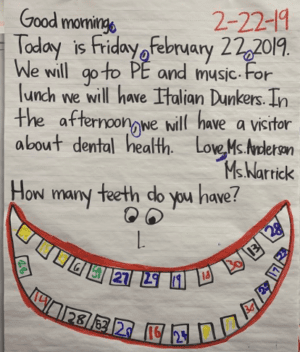 Good morning,
2-22-19
Today is Friday, February 22, 2019.
We will go to PE and music. For
lunch we will have Italian Dunkers. In
the afternoon, we will have a visitor
about dental health. Love, Ms. Anderson
Ms. Warrick
How many teeth do you have?
28
13
30
6
27
29
11
17
14
28
16